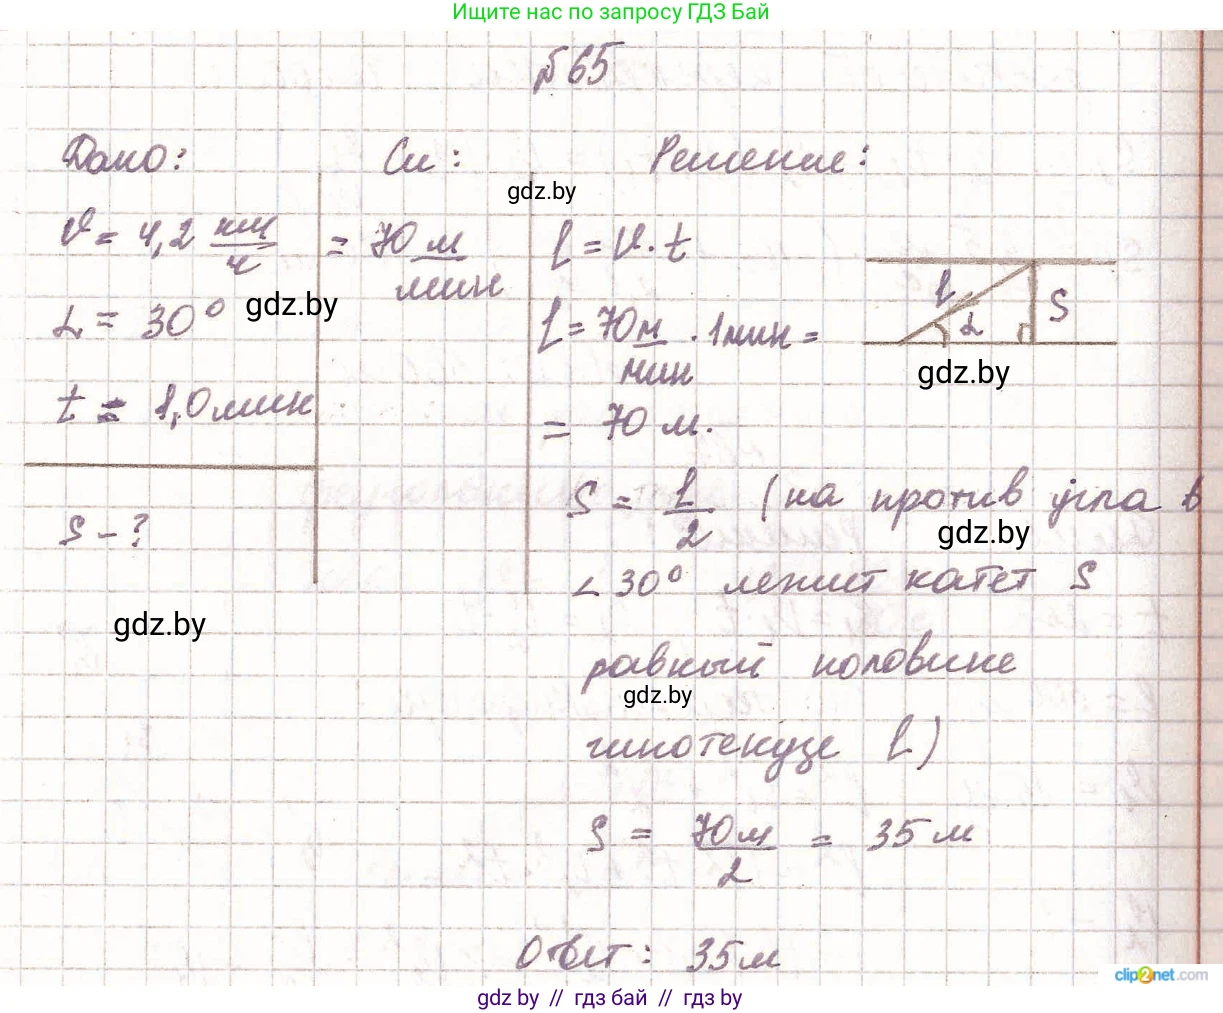 Ищите нас по запросу ГДЗ Бай
№65
Дано: Си: Решение:
gdz.by
υ = 4,2 км/ч = 70 м/мин l = υ · t
gdz.by
α = 30° l = 70 м/мин · 1 мин =
l α S
gdz.by
t = 1,0 мин = 70 м.
S - ?
S = l/2 (на против угла в
gdz.by
∠30° лежит катет S
gdz.by
равный половине
gdz.by
гипотенузе l)
S = 70м/2 = 35 м
Ответ: 35м
clip2net.com
gdz by // гдз бай // гдз by